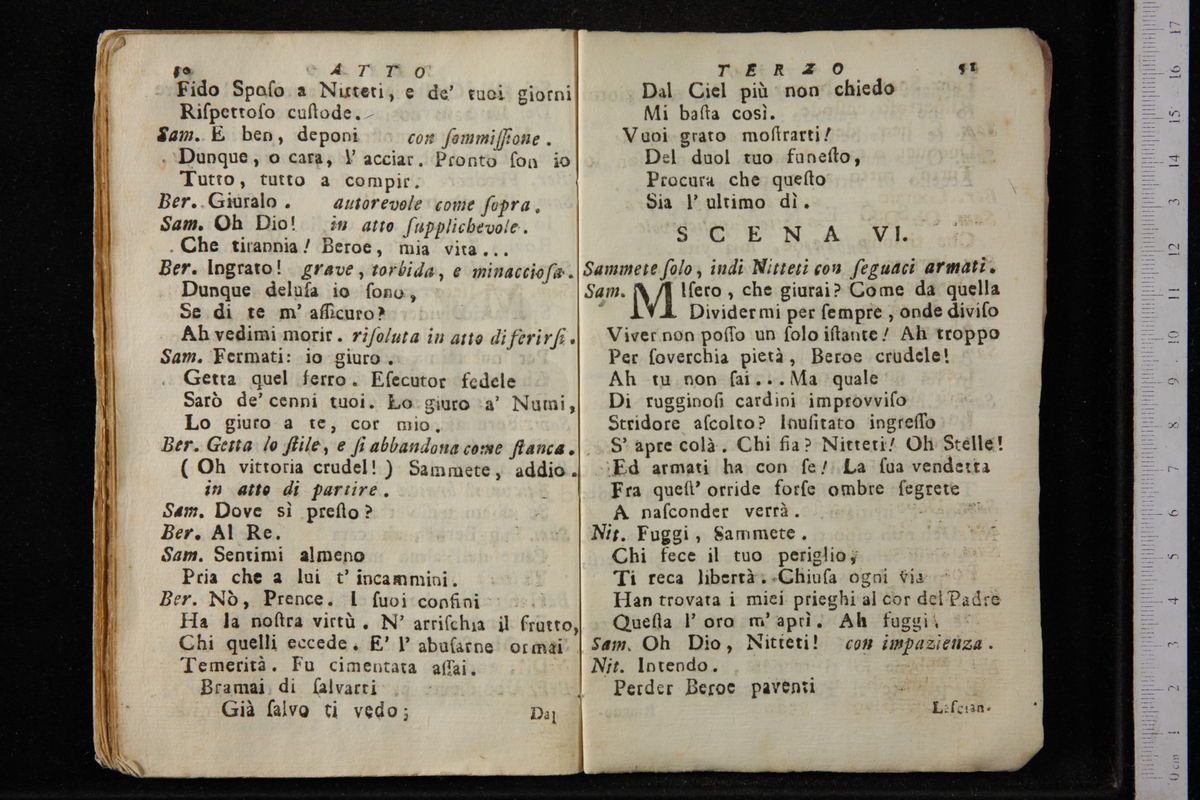 50 ATTO
Fido Spoſo a Nitteti, e de' tuoi giorni
Riſpettoſo cuſtode.
Sam. E ben, deponi con ſommiſſione.
Dunque, o cara, l' acciar. Pronto ſon io
Tutto, tutto a compir.
Ber. Giuralo. autorevole come ſopra.
Sam. Oh Dio! in atto ſupplichevole.
Che tirannia! Beroe, mia vita...
Ber. Ingrato! grave, torbida, e minaccioſa.
Dunque deluſa io ſono,
Se di te m' aſſicuro?
Ah vedimi morir. riſoluta in atto di ferirſi.
Sam. Fermati: io giuro.
Getta quel ferro. Eſecutor fedele
Sarò de' cenni tuoi. Lo giuro a' Numi,
Lo giuro a te, cor mio.
Ber. Getta lo ſtile, e ſi abbandona come ſtanca.
( Oh vittoria crudel! ) Sammete, addio.
in atto di partire.
Sam. Dove sì preſto?
Ber. Al Re.
Sam. Sentimi almeno
Pria che a lui t' incammini.
Ber. Nò, Prence. I ſuoi confini
Ha la noſtra virtù. N' arriſchia il frutto,
Chi quelli eccede. E' l' abuſarne ormai
Temerità. Fu cimentata aſſai.
Bramai di ſalvarti
Già ſalvo ti vedo;
Dal
TERZO 51
Dal Ciel più non chiedo
Mi baſta così.
Vuoi grato moſtrarti!
Del duol tuo funeſto,
Procura che queſto
Sia l' ultimo dì.
SCENA VI.
Sammete ſolo, indi Nitteti con ſeguaci armati.
Sam. MIſero, che giurai? Come da quella
Dividermi per ſempre, onde diviſo
Viver non poſſo un ſolo iſtante! Ah troppo
Per ſoverchia pietà, Beroe crudele!
Ah tu non ſai... Ma quale
Di rugginoſi cardini improvviſo
Stridore aſcolto? Inuſitato ingreſſo
S' apre colà. Chi fia? Nitteti! Oh Stelle!
Ed armati ha con ſe! La ſua vendetta
Fra queſt' orride forſe ombre ſegrete
A naſconder verrà.
Nit. Fuggi, Sammete.
Chi fece il tuo periglio,
Ti reca libertà. Chiuſa ogni via
Han trovata i miei prieghi al cor del Padre
Queſta l' oro m' aprì. Ah fuggi.
Sam. Oh Dio, Nitteti! con impazienza.
Nit. Intendo.
Perder Beroe paventi
Laſcian-
0 cm 1 2 3 4 5 6 7 8 9 10 11 12 13 14 15 16 17